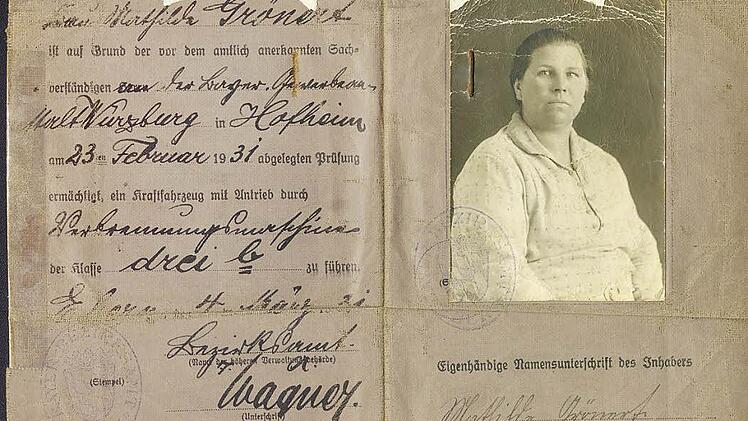 Frau Mathilde Grönert
ist auf Grund der vor dem amtlich anerkannten Sach-
verständigen der Bayer. Gewerbean-
stalt Würzburg in Hofheim
am 23ten Februar 1931 abgelegten Prüfung
ermächtigt, ein Kraftfahrzeug mit Antrieb durch
Verbrennungsmaschine
der Klasse drei b zu führen.
4. März 31
Bezirksamt.
(Name der höheren Verwaltungsbehörde)
(Stempel)
Wagner.
(Unterschrift)
(S
Eigenhändige Namensunterschrift des Inhabers
Mathilde Grönert